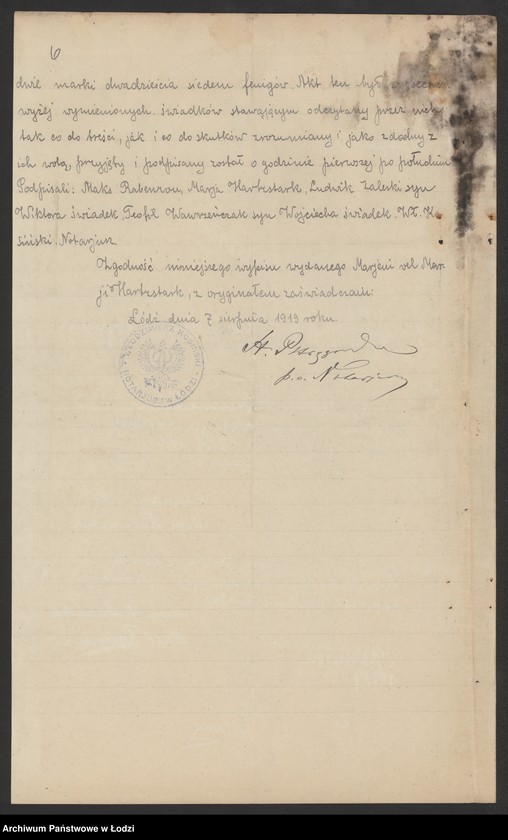 6
dwie marki dwadzieścia siedem fenigów. Akt ten był
wyżej wymienionych świadków stawającym odczytany przez nich
tak co do treści, jak i co do skutków zrozumiany i jako zgodny z
ich wolą, przyjęty i podpisany został o godzinie pierwszej po południu
Podpisali: Maks Rabenrou, Marja Hartzstark, Ludwik Zaleski syn
Wiktora świadek, Teofil Wawrzeńczak syn Wojciecha świadek. Wł. Ko-
siński. Notarjusz.
Zgodność niniejszego wypisu wydanego Marjem vel Mar-
ji Hartzstark, z oryginałem zaświadczam:
Łódź dnia 7 sierpnia 1919 roku.
p.o. Notarjusza
NOTARJUSZ W ŁODZI
Archiwum Państwowe w Łodzi